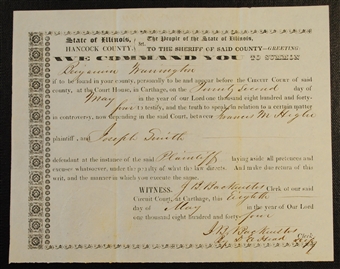 State of Illinois, The People of the State of Illinois,
HANCOCK COUNTY. TO THE SHERIFF OF SAID COUNTY—GREETING.
WE COMMAND YOU TO SUMMON
Benjamin
if to be found in your county, personally to be and appear before the CIRCUIT COURT of said
county, at the Court House, in Carthage, on the Twenty Second day of
May in the year of our Lord one thousand eight hundred and forty-
four to testify, and the truth to speak in relation to a certain matter
in controversy, now depending in the said Court, between Francis M. Higbee
plaintiff, and Joseph Smith
defendant at the instance of the said Plaintiff laying aside all pretences and
excuses whatsoever, under the penalty of what the law directs. And make due return of this
writ, and the manner in which you execute the same.
WITNESS, J B Backenstos Clerk of our said
Circuit Court, at Carthage, this eighth
day of May in the year of Our Lord
one thousand eight hundred and forty four
J B Backenstos Clerk